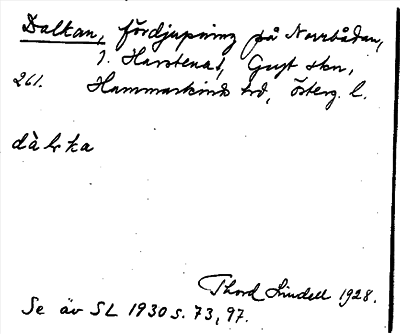 Daltan, fördjupning på Norrbådan,
i. Harstena, Gryt skn,
261. Hammarkinds hd, Österg. l.
dàlta
Thord Lindell 1928.
Se äv SL 1930 s. 73, 97.